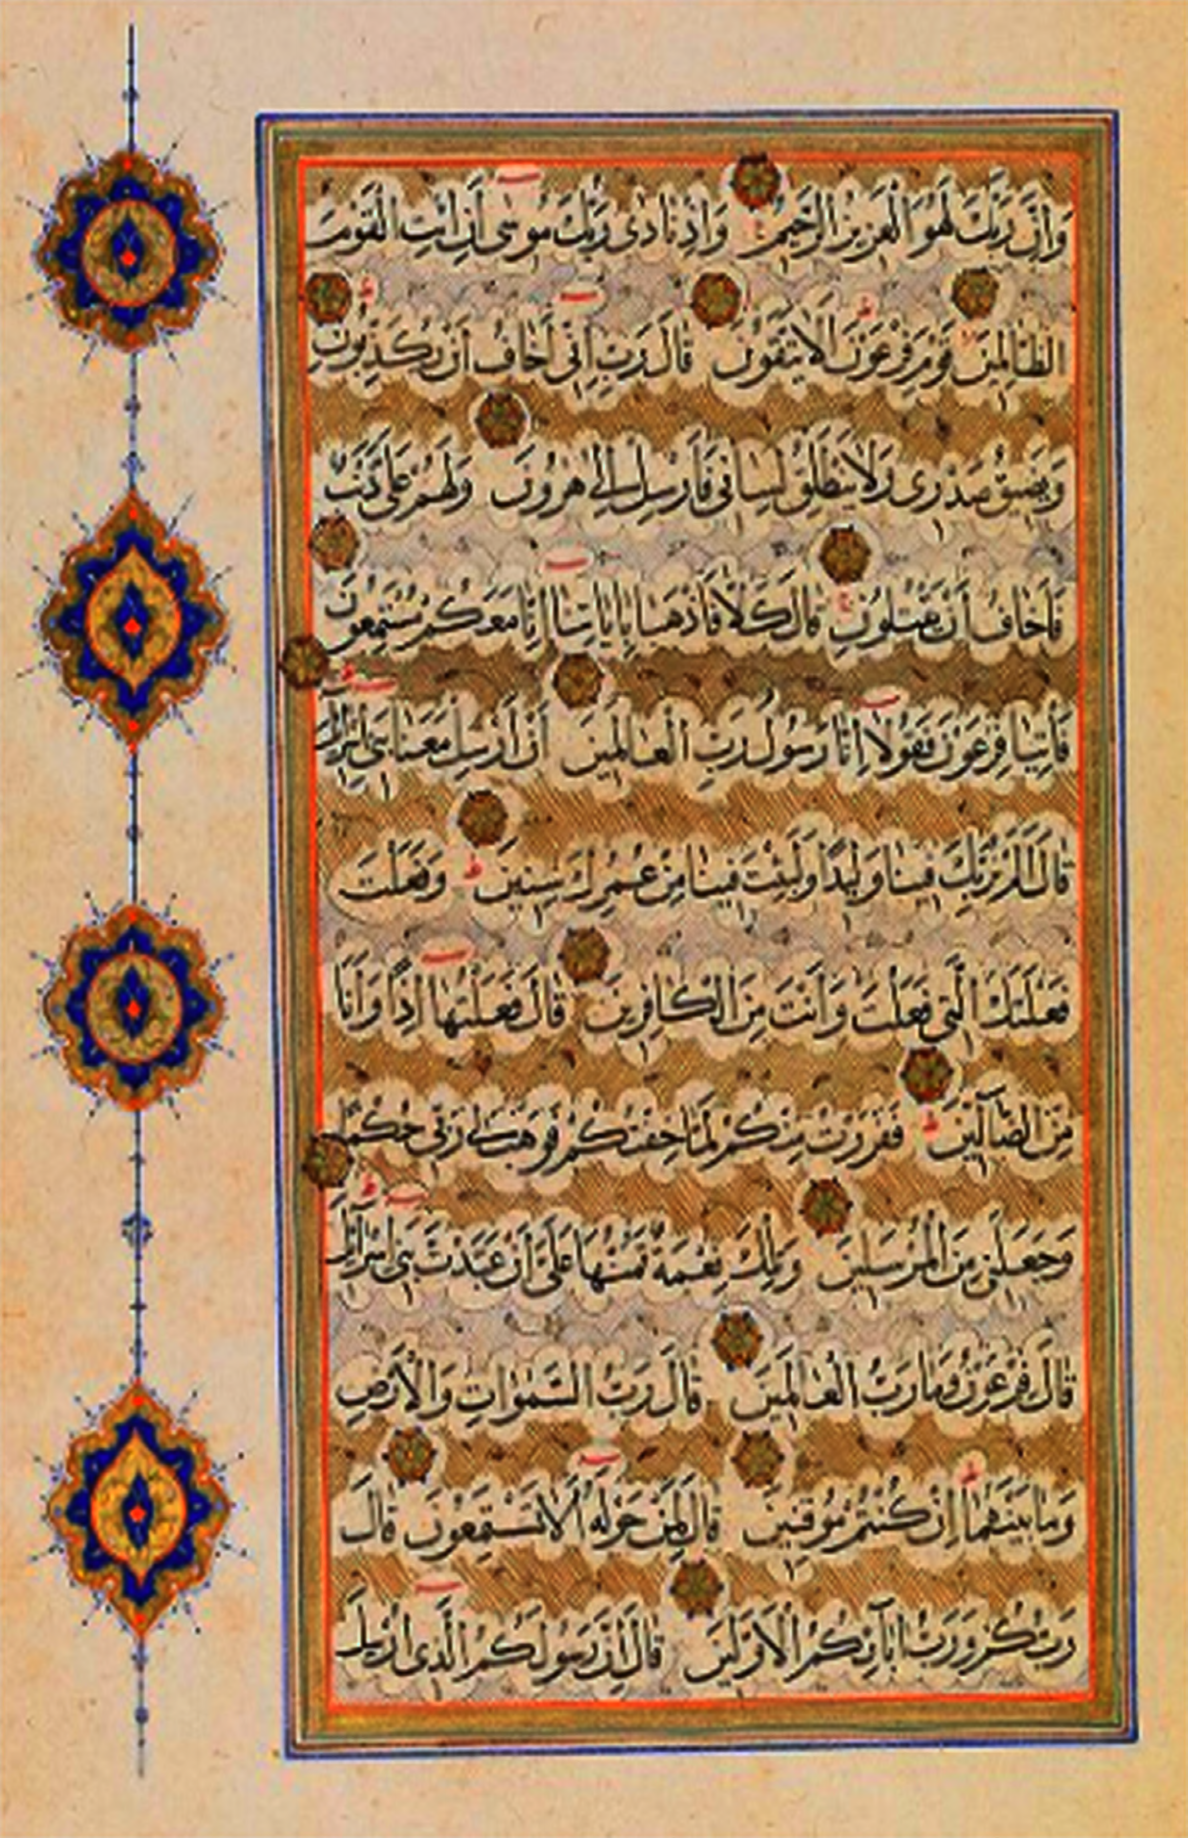 وَاِنَّ رَبَّكَ لَهُوَ الْعَزِيزُ الرَّحِيمُ وَاِذْ نَادٰى رَبُّكَ مُوسٰى اَنِ ائْتِ الْقَوْمَ
الظَّالِمِينَ قَوْمَ فِرْعَوْنَ اَلَا يَتَّقُونَ قَالَ رَبِّ اِنِّى اَخَافُ اَنْ يُكَذِّبُونِ
وَيَضِيقُ صَدْرِى وَلَا يَنْطَلِقُ لِسَانِى فَاَرْسِلْ اِلٰى هٰرُونَ وَلَهُمْ عَلَىَّ ذَنْبٌ
فَاَخَافُ اَنْ يَقْتُلُونِ قَالَ كَلَّا فَاذْهَبَا بِاٰيَاتِنَا اِنَّا مَعَكُمْ مُسْتَمِعُونَ
فَاْتِيَا فِرْعَوْنَ فَقُولَا اِنَّا رَسُولُ رَبِّ الْعَالَمِينَ اَنْ اَرْسِلْ مَعَنَا بَنِى اِسْرَائِلَ
قَالَ اَلَمْ نُرَبِّكَ فِينَا وَلِيدًا وَلَبِثْتَ فِينَا مِنْ عُمُرِكَ سِنِينَ وَفَعَلْتَ
فَعْلَتَكَ الَّتِى فَعَلْتَ وَاَنْتَ مِنَ الْكَافِرِينَ قَالَ فَعَلْتُهَا اِذًا وَاَنَا
مِنَ الضَّالِّينَ فَفَرَرْتُ مِنْكُمْ لَمَّا خِفْتُكُمْ فَوَهَبَ لِى رَبِّى حُكْمًا
وَجَعَلَنِى مِنَ الْمُرْسَلِينَ وَتِلْكَ نِعْمَةٌ تَمُنُّهَا عَلَىَّ اَنْ عَبَّدْتَ بَنِى اِسْرَائِلَ
قَالَ فِرْعَوْنُ وَمَا رَبُّ الْعَالَمِينَ قَالَ رَبُّ السَّمٰوَاتِ وَالْاَرْضِ
وَمَا بَيْنَهُمَا اِنْ كُنْتُمْ مُوقِنِينَ قَالَ لِمَنْ حَوْلَهُ اَلَا تَسْتَمِعُونَ قَالَ
رَبُّكُمْ وَرَبُّ اٰبَائِكُمُ الْاَوَّلِينَ قَالَ اِنَّ رَسُولَكُمُ الَّذِى اُرْسِلَ